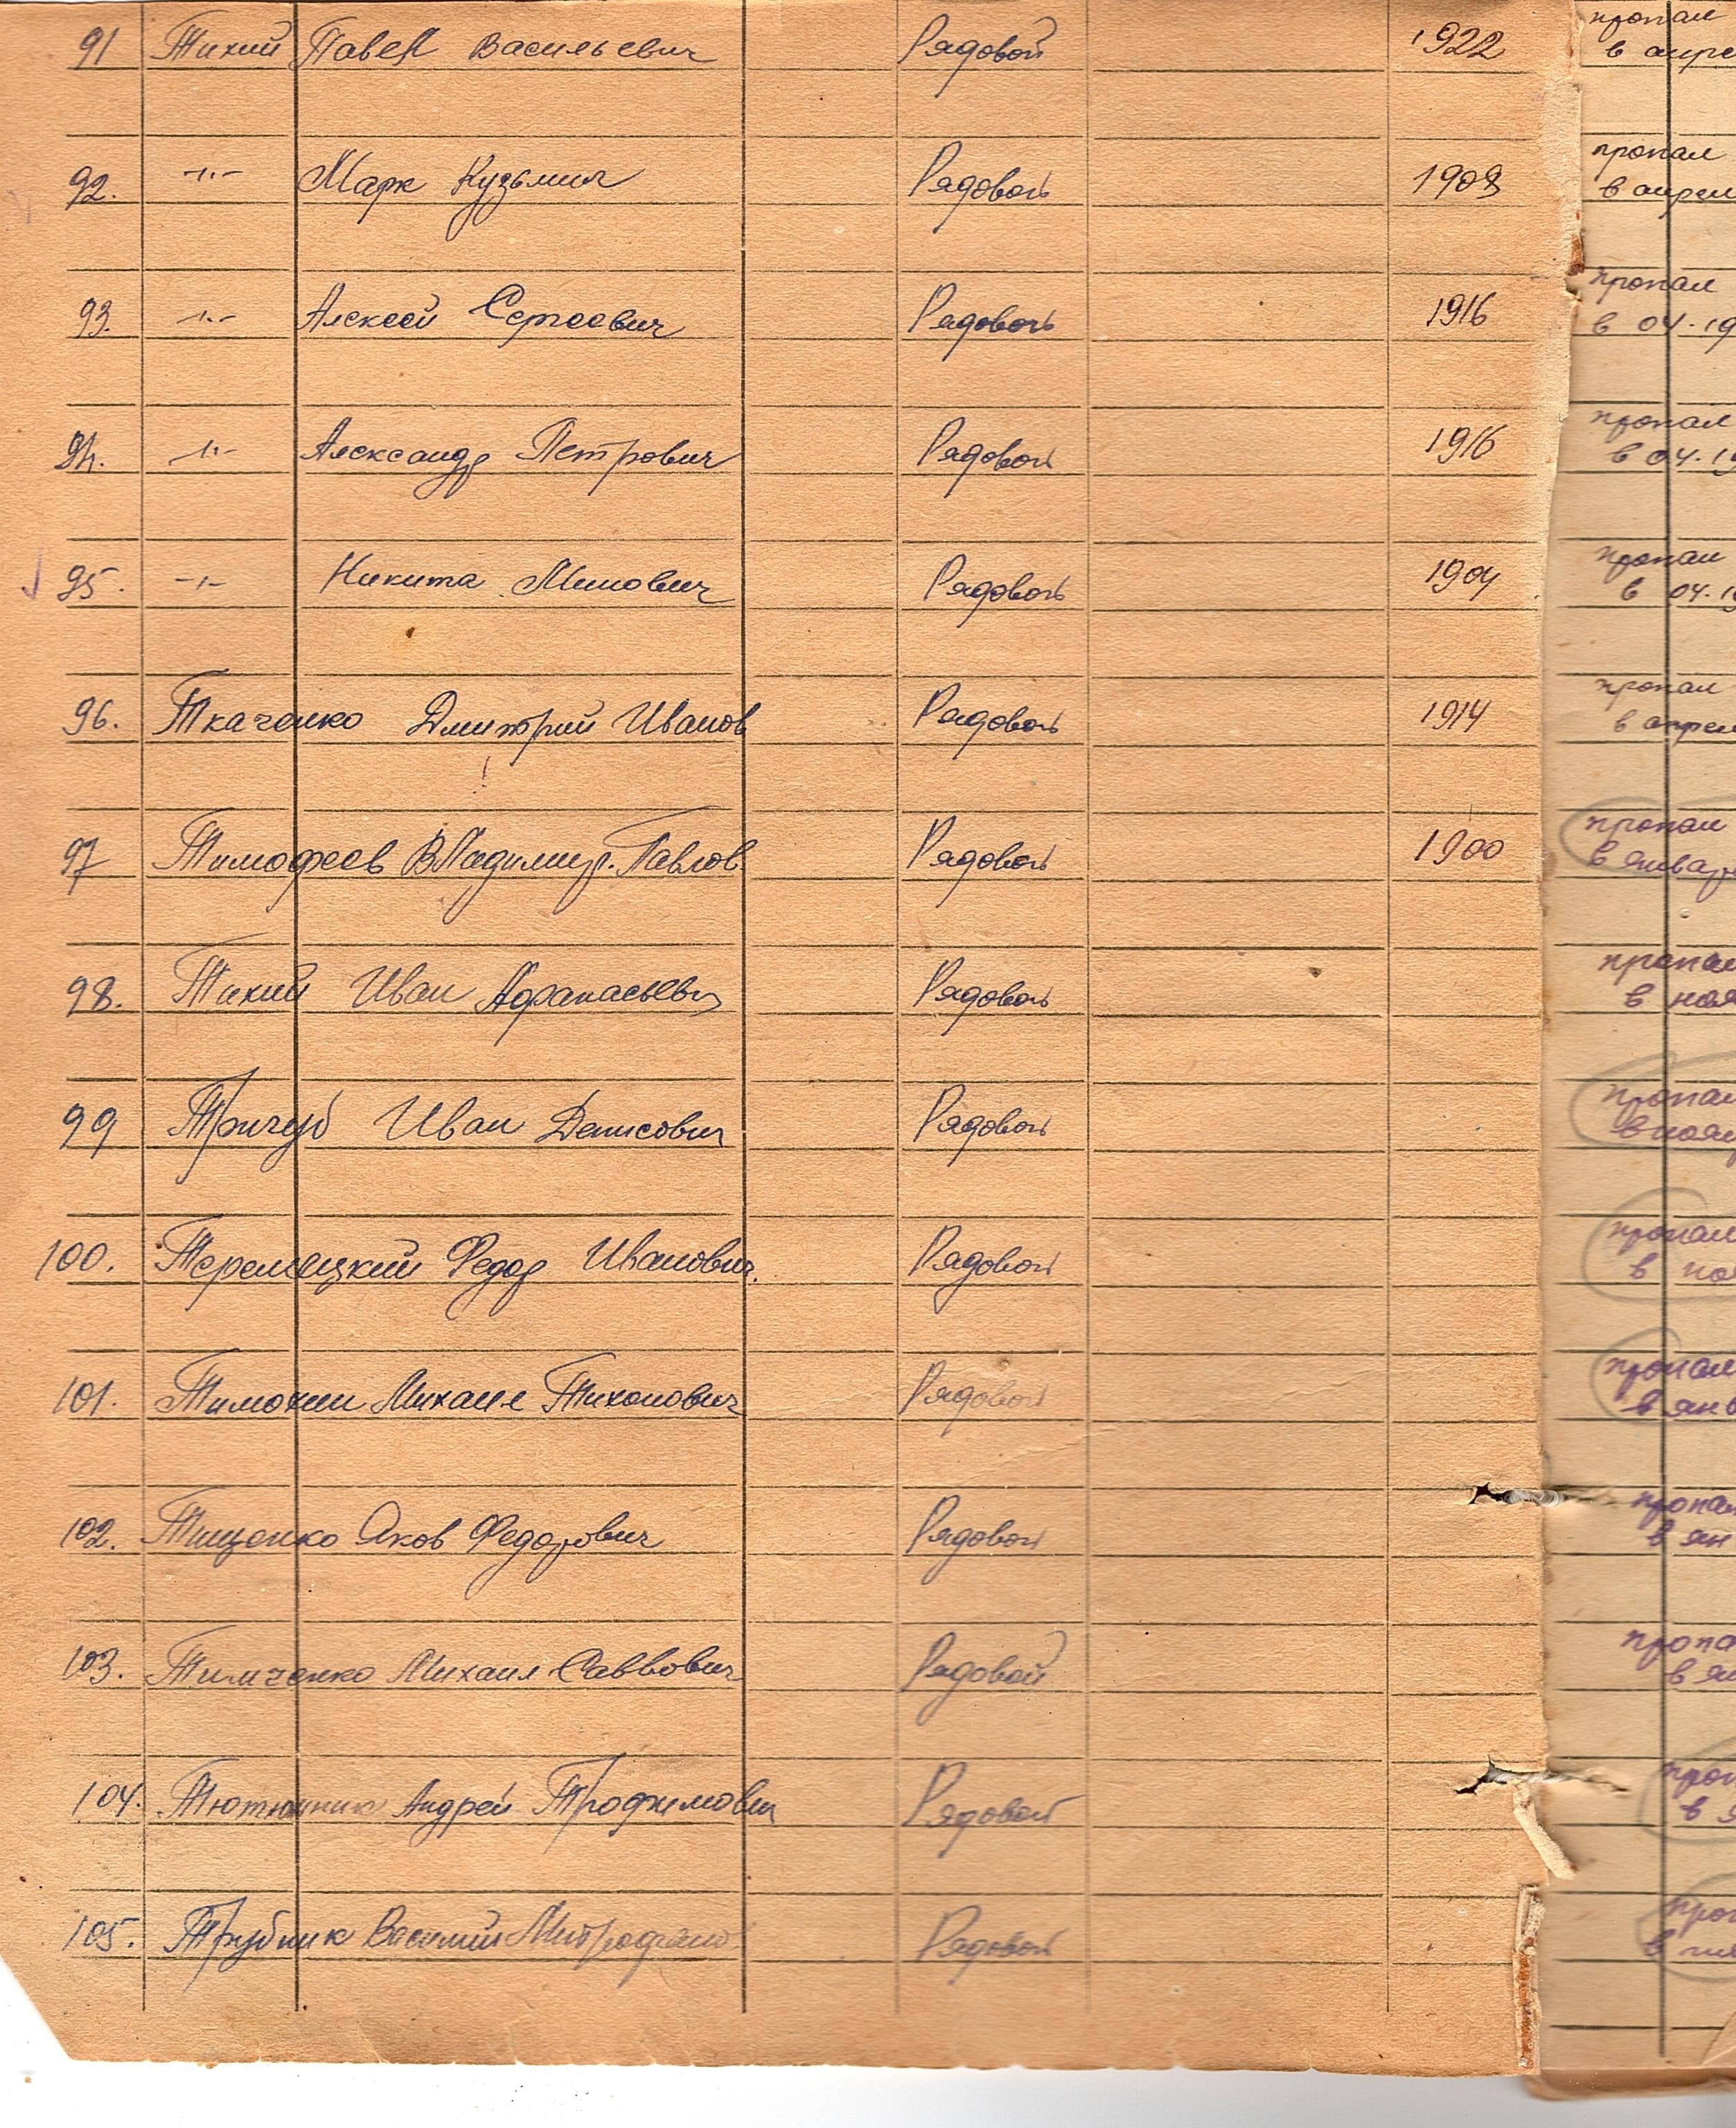 91 Тихий Павел Васильевич Рядовой 1922 пропал
в апре
92. -"- Марк Кузьмич Рядовой 1908 пропал
в апрел
93. -"- Алексей Сергеевич Рядовой 1916 пропал
в 04.19
94. -"- Александр Петрович Рядовой 1916 пропал
в 04.19
95. -"- Никита Минович Рядовой 1904 пропал
в 04.19
96. Ткаченко Дмитрий Иванов Рядовой 1914 пропал
в апрел
97 Тимофеев Владимир. Павлов. Рядовой 1900 пропал
в январ
98. Тихий Иван Афанасьевич Рядовой пропал
в ноя
99 Тричуб Иван Денисович Рядовой пропал
в нояб
100. Теремецкий Федор Иванович. Рядовой пропал
в ноя
101. Тимохин Михаил Тихонович Рядовой пропал
в янв
102. Тищенко Яков Федорович Рядовой пропа
в ян
103. Тимченко Михаил Саввович Рядовой пропа
в ян
104. Тютюнник Андрей Трофимович Рядовой проп
в я
105. Трубник Василий Митрофано Рядовой проп
в